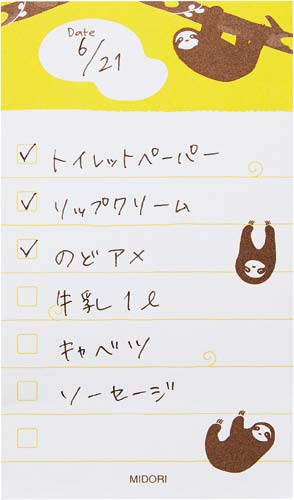 Date
6/21
トイレットペーパー
リップクリーム
のどアメ
牛乳1ℓ
キャベツ
ソーセージ
MIDORI